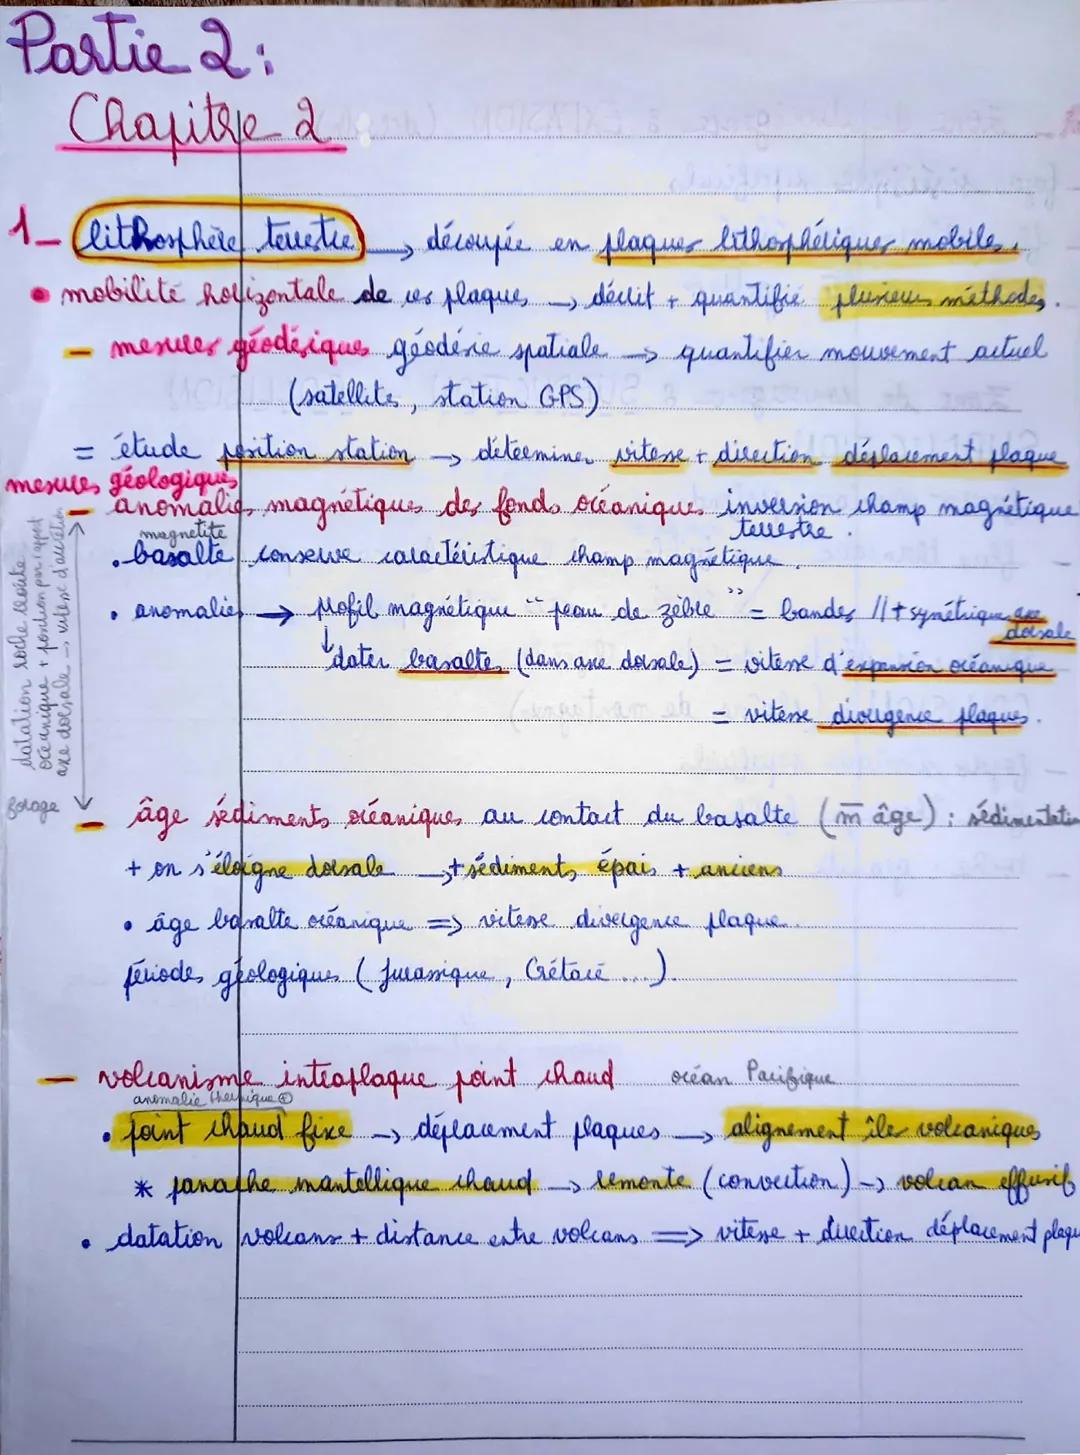 Partie 2:
Chapitre 2
1_ lithosphère terrestre → découpée en plaques lithosphériques mobiles.
• mobilité horizontale de ces plaques → décrit + quantifié plusieurs méthodes.
- mesures géodésiques géodésie spatiale → quantifier mouvement actuel
(satellites, station GPS)
= étude position station → déterminer vitesse + direction déplacement plaque
mesures géologiques
- anomalies magnétiques des fonds océaniques inversion champ magnétique
terrestre.
magnetite
• basalte conserve caractéristique champ magnétique.
• anomalies → profil magnétique "peau de zèbre" = bandes // + symétrique axe
dorsale
↓ dater basalte (dans axe dorsale) = vitesse d'expansion océanique
= vitesse divergence plaques.
datation roche croûte
océanique + fonction par rapport
axe dorsale → vitesse d'accrétion
forage
- âge sédiments océaniques au contact du basalte (m̄ âge) : sédimentation
+ on s'éloigne dorsale → + sédiments épais + anciens
• âge basalte océanique => vitesse divergence plaque.
périodes géologiques (Jurassique, Crétacé ...).
- volcanisme intraplaque point chaud océan Pacifique
anomalie thermique ⊕
• point chaud fixe → déplacement plaques → alignement îles volcaniques
* panache mantellique chaud → remonte (convection) → volcan effusif
• datation volcans + distance entre volcans => vitesse + direction déplacement plaqu